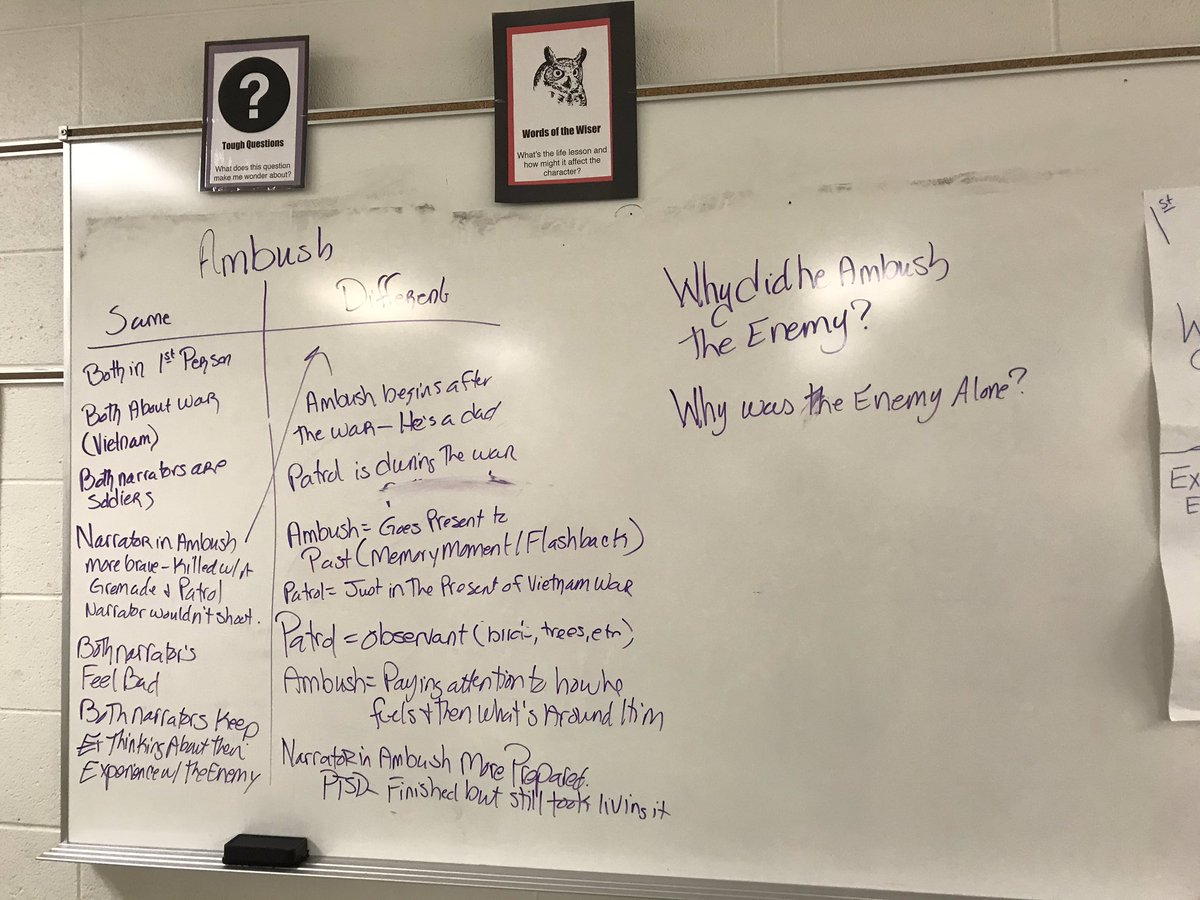 ?
Tough Questions
What does this question
make me wonder about?
Words of the Wiser
What's the life lesson and
how might it affect the
character?
Ambush
Same
Both in 1st Person
Both About War
(Vietnam)
Both narrators are
Soldiers
Narrator in Ambush
more brave - Killed w/ A
Grenade & Patrol
Narrator wouldn't shoot.
Both narrator's
Feel Bad
Both narrators keep
Thinking About their
Experience w/ the Enemy
Different
Ambush begins after
the war - He's a dad
Patrol is during the war
Ambush = Goes Present to
Past (Memory Moment / Flashback)
Patrol = Just in The Present of Vietnam War
Patrol = observant (bird, trees, etc)
Ambush = Paying attention to how he
feels & then what's Around Him
Narrator in Ambush More Prepared.
PTSD - Finished but still living it
Why did he Ambush
the Enemy?
Why was the Enemy Alone?
1st
Ex
E